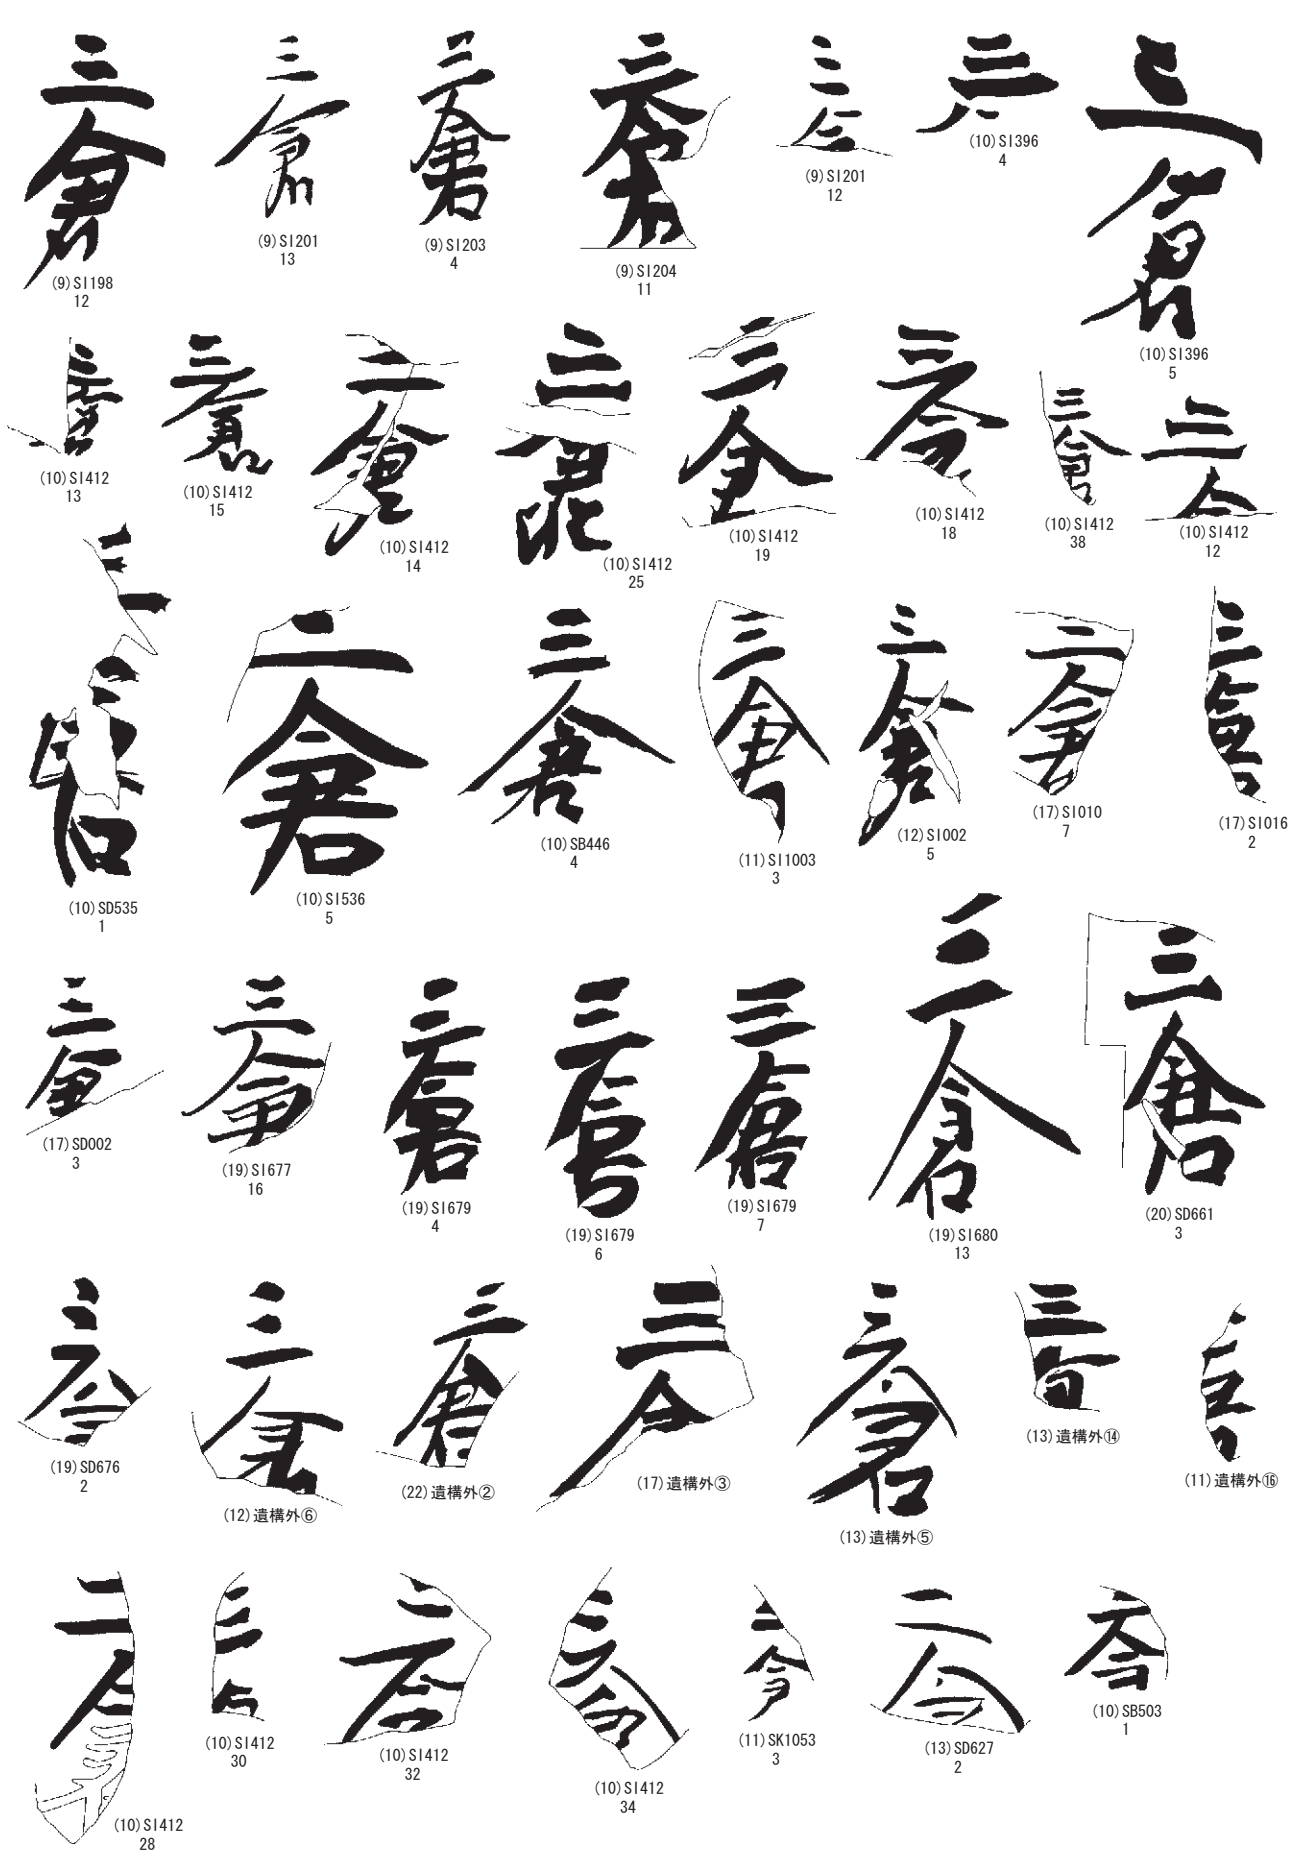 三倉
(9)SI198
12
三倉
(9)SI201
13
三倉
(9)SI203
4
三倉
(9)SI204
11
三倉
(9)SI201
12
三
(10)SI396
4
三倉
(10)SI396
5
三倉
(10)SI412
13
三倉
(10)SI412
15
三倉
(10)SI412
14
三倉
(10)SI412
25
三倉
(10)SI412
19
三倉
(10)SI412
18
三倉
(10)SI412
38
三倉
(10)SI412
12
三倉
(10)SD535
1
三倉
(10)SI536
5
三倉
(10)SB446
4
三倉
(11)SI1003
3
三倉
(12)SI002
5
三倉
(17)SI010
7
三倉
(17)SI016
2
三倉
(17)SD002
3
三倉
(19)SI677
16
三倉
(19)SI679
4
三倉
(19)SI679
6
三倉
(19)SI679
7
三倉
(19)SI680
13
三倉
(20)SD661
3
三倉
(19)SD676
2
三倉
(12)遺構外⑥
三倉
(22)遺構外②
三倉
(17)遺構外③
三倉
(13)遺構外⑤
三倉
(13)遺構外⑭
三倉
(11)遺構外⑯
三倉
(10)SI412
28
三倉
(10)SI412
30
三倉
(10)SI412
32
三倉
(10)SI412
34
三倉
(11)SK1053
3
三倉
(13)SD627
2
三倉
(10)SB503
1